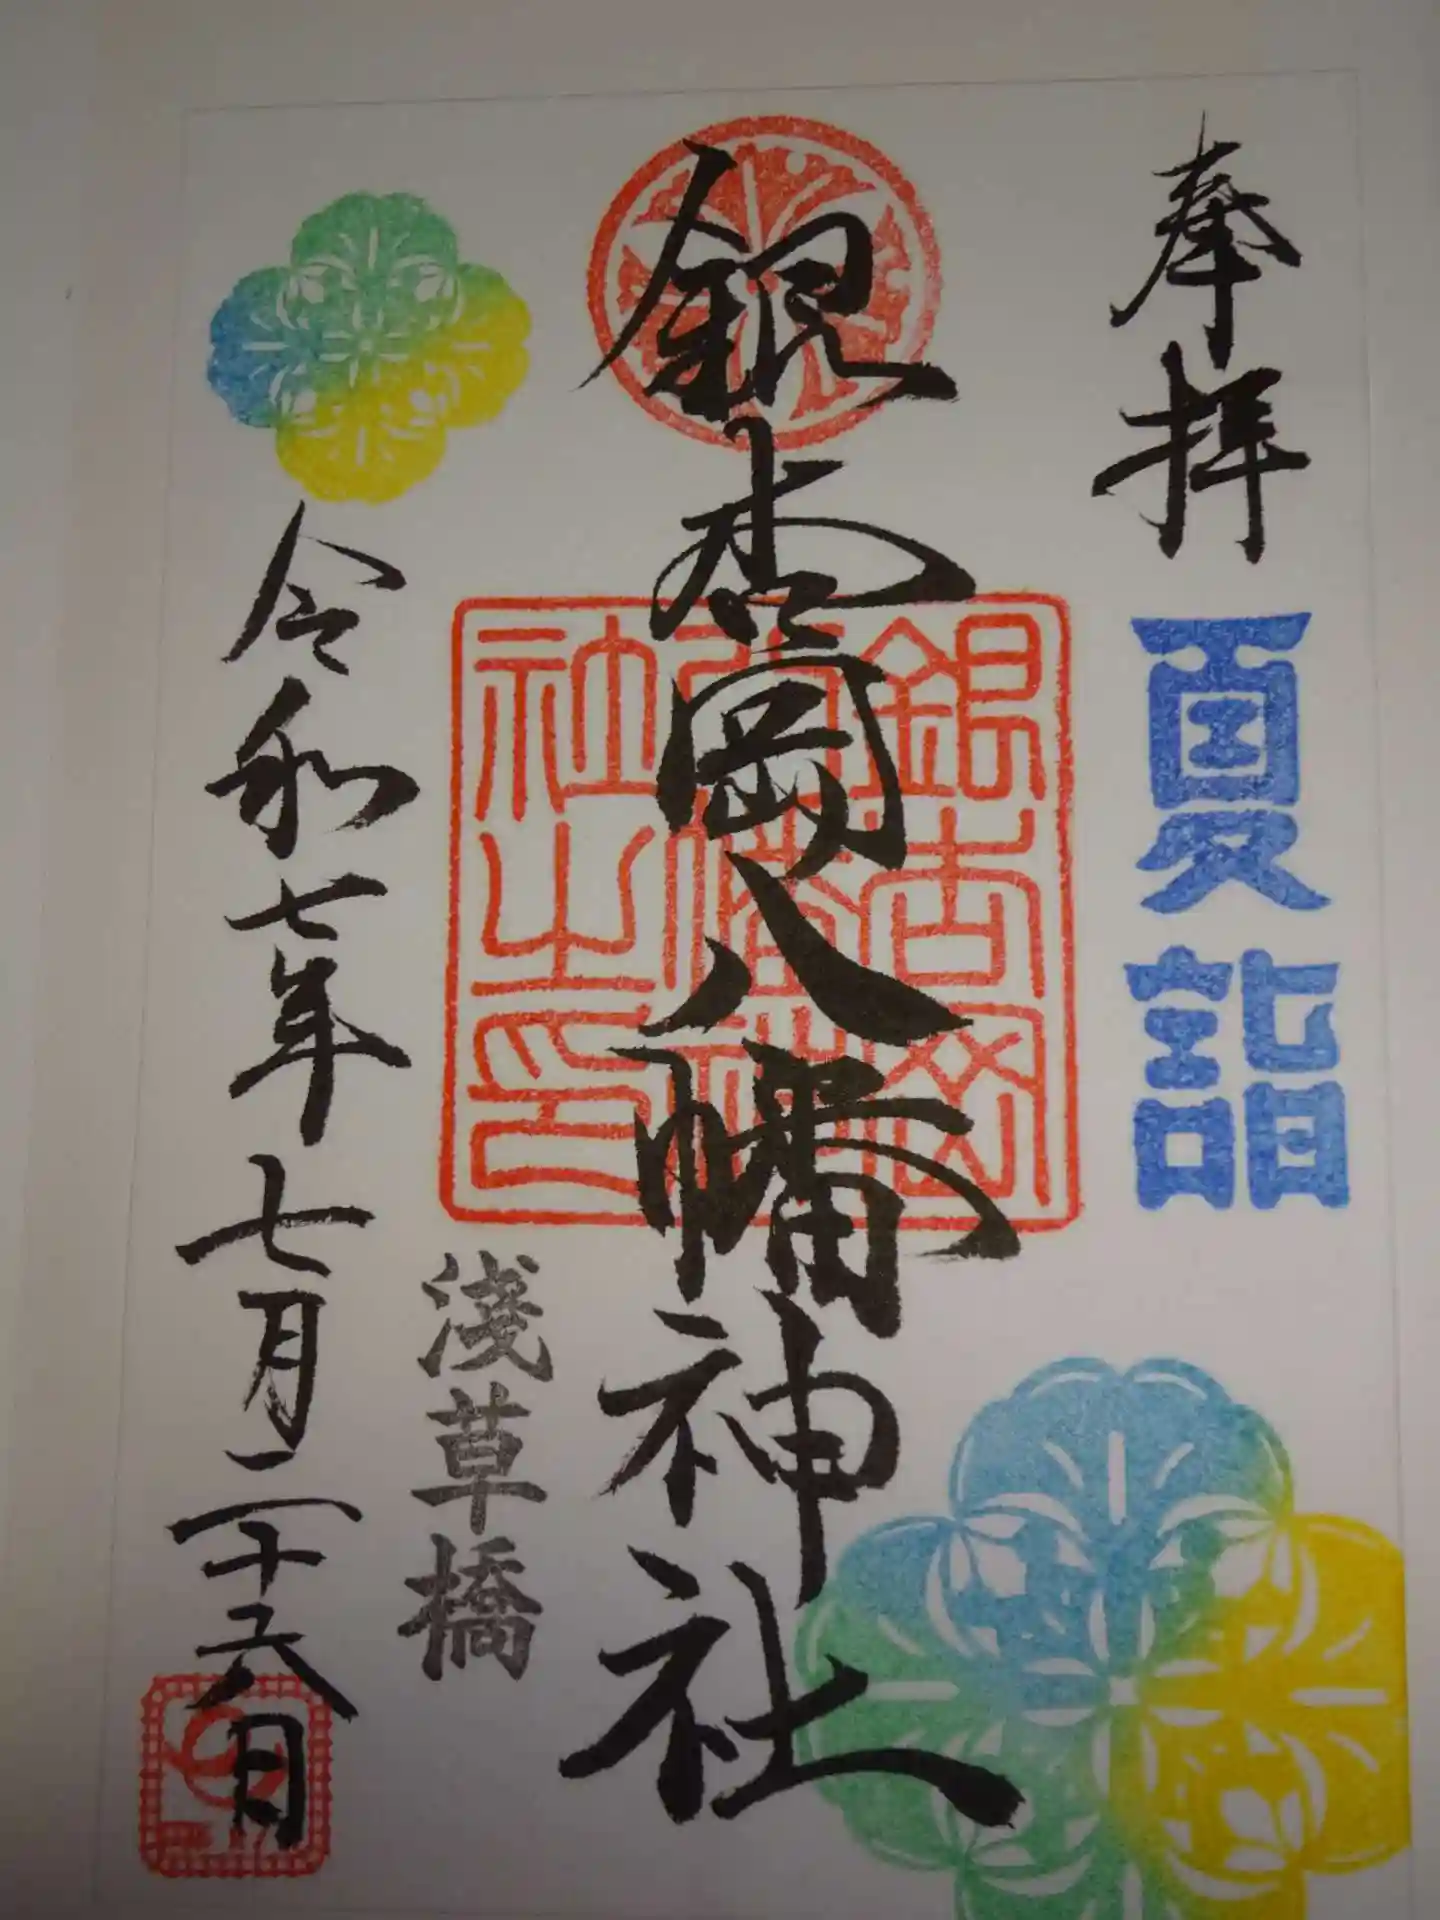 奉拝
夏詣
銀杏岡八幡神社
銀杏岡
八幡神
社之印
淺草橋
令和七年七月二十六日